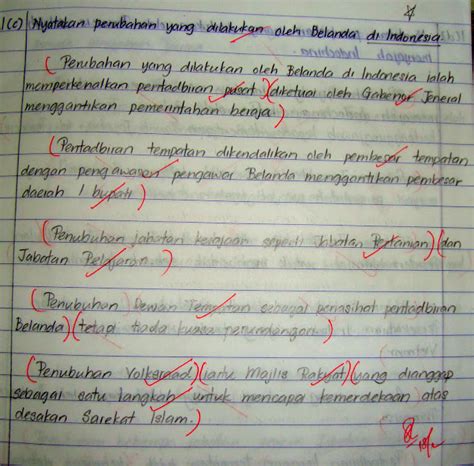 1(c) Nyatakan perubahan yang dilakukan oleh Belanda di Indonesia
(Perubahan yang dilakukan oleh Belanda di Indonesia ialah
memperkenalkan pentadbiran pusat)(diketuai oleh Gabenor Jeneral
menggantikan pemerintahan beraja)
(Pentadbiran tempatan dikendalikan oleh pembesar tempatan
dengan pengawasan pengawai Belanda menggantikan pembesar
daerah / bupati)
(Penubuhan jabatan kerajaan seperti Jabatan Pertanian)(dan
Jabatan Pelajaran)
(Penubuhan Dewan Tempatan sebagai penasihat pentadbiran
Belanda)(tetapi tiada kuasa perundangan.)
(Penubuhan Volksraad)(iaitu Majlis Rakyat)(yang dianggap
sebagai satu langkah untuk mencapai kemerdekaan atas
desakan Sarekat Islam.)